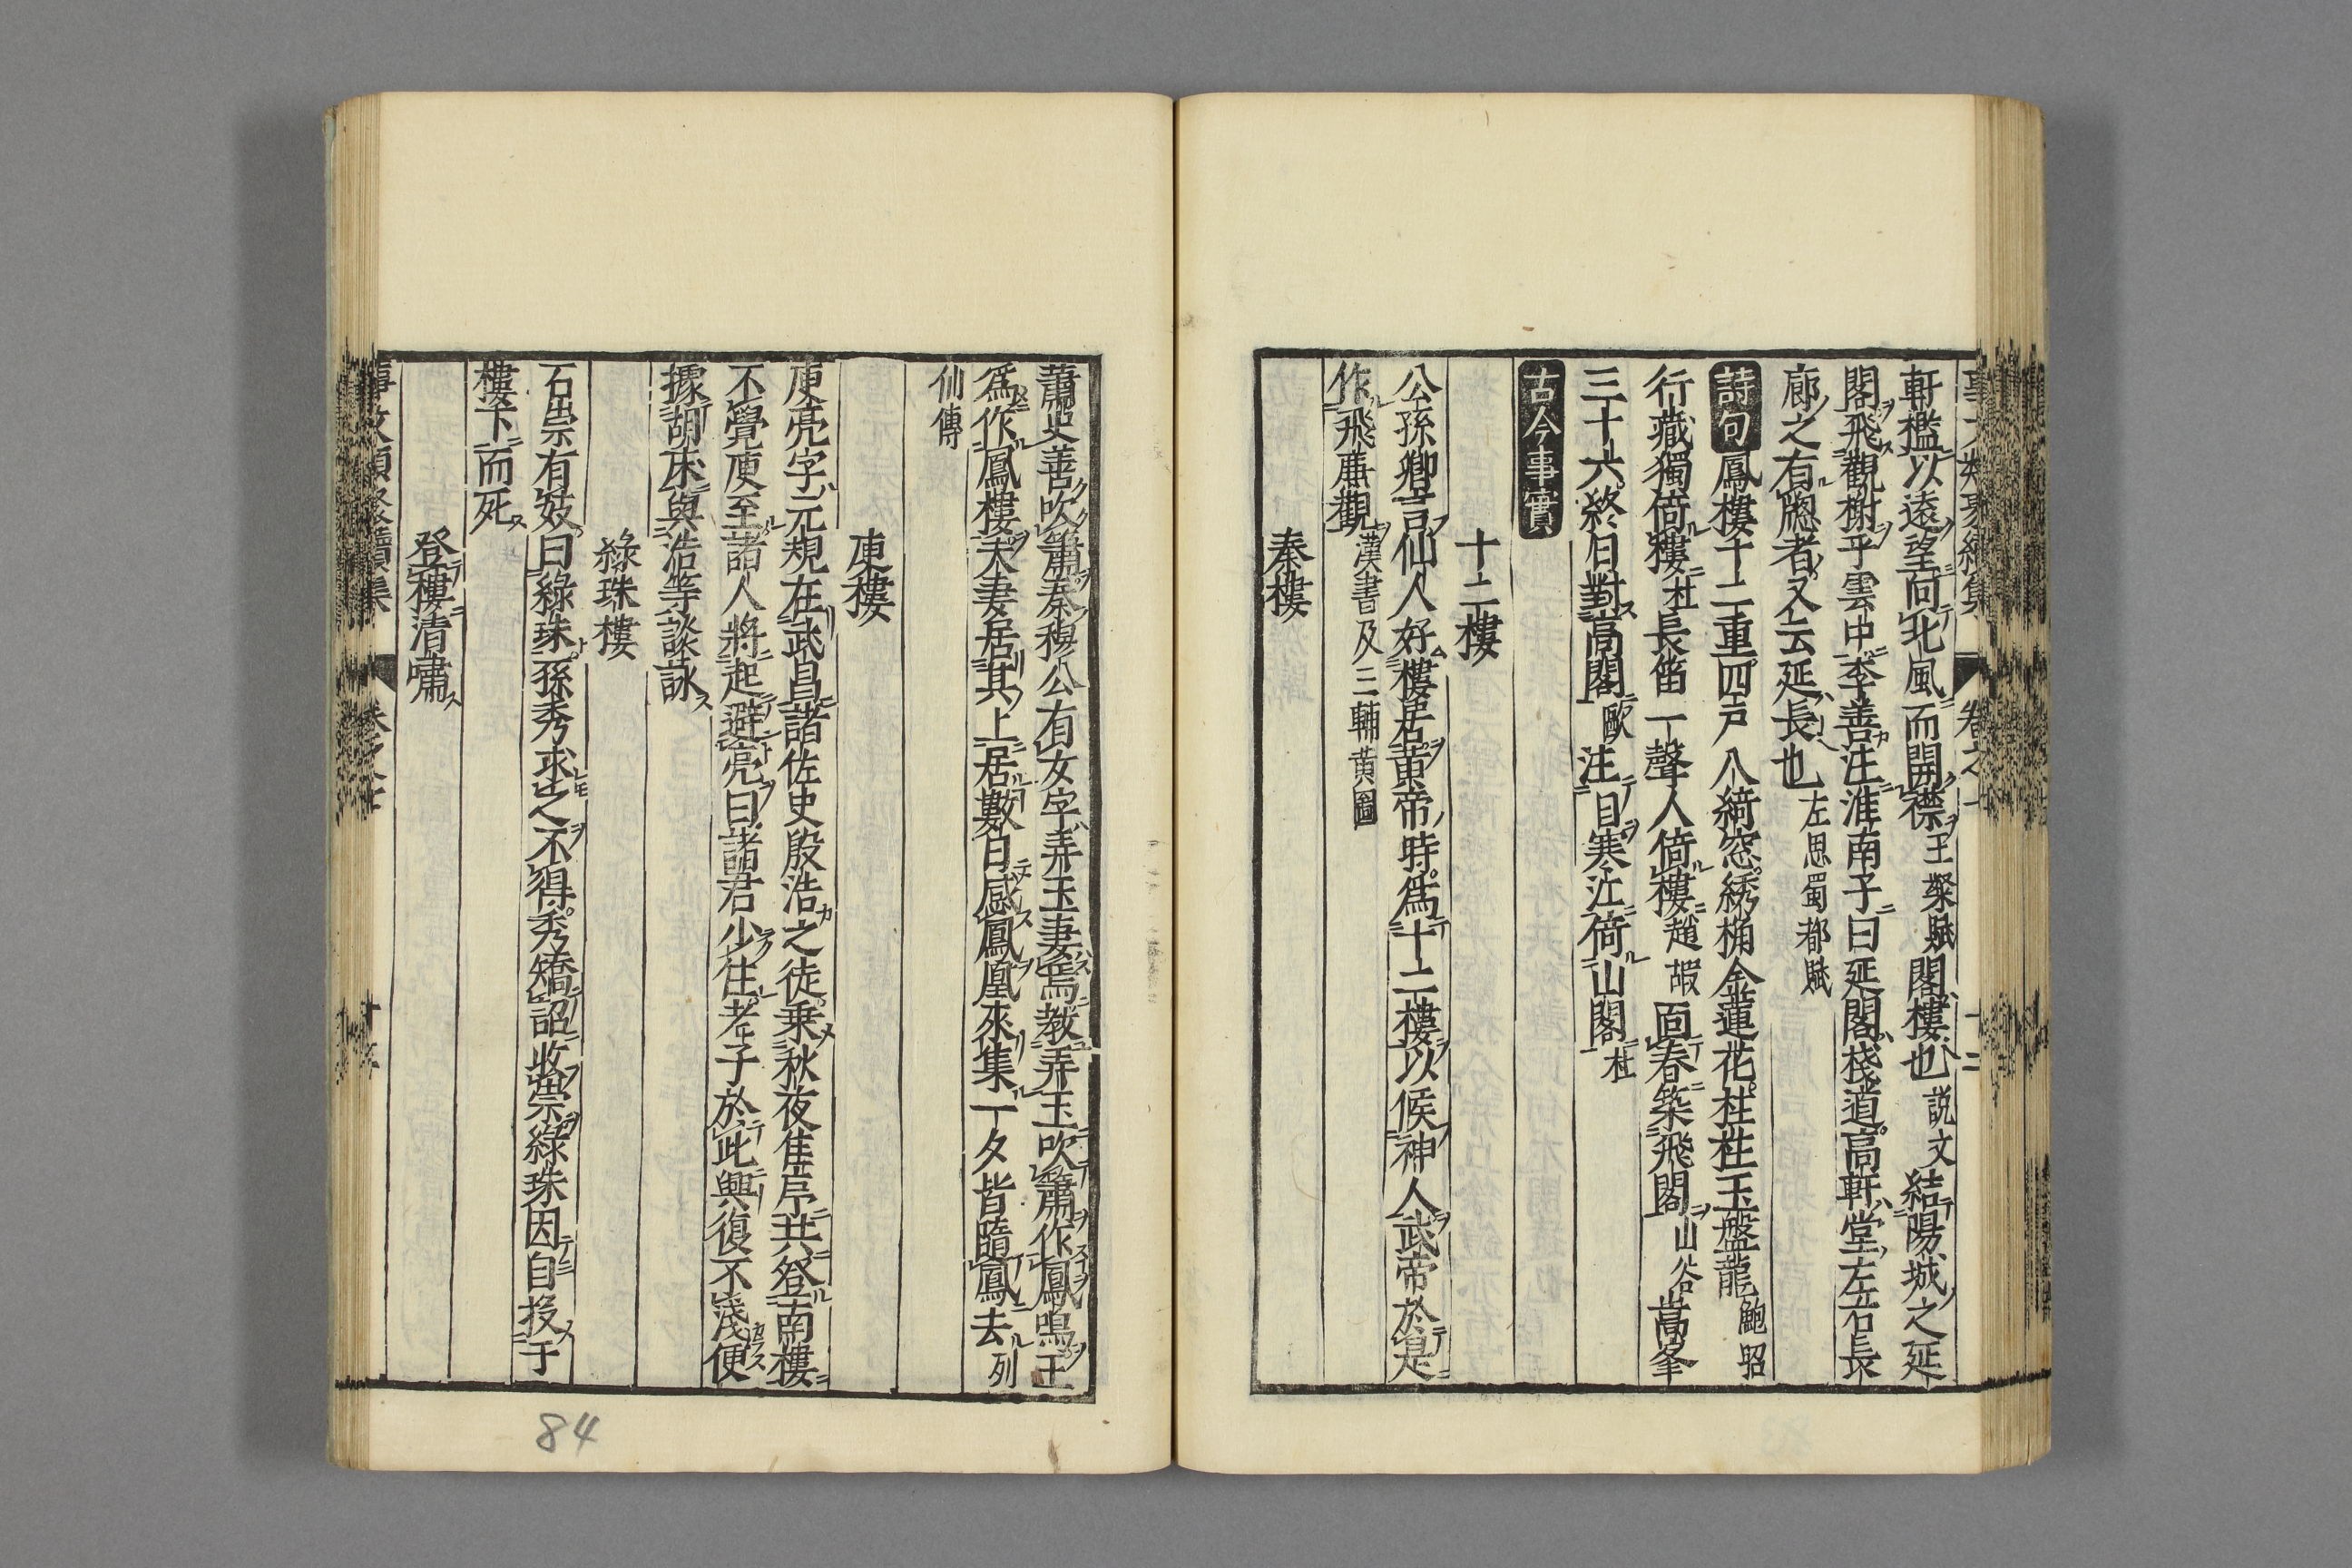 軒檻以遠望向北風而開襟王粲賦閣樓也説文結陽城之延
閣飛觀榭乎雲中李善注淮南子曰延閣棧道高軒堂左右長
廊之有牕者又云延長也左思蜀都賦
詩句鳳樓十二重四戸八綺窓綉桷金蓮花桂柱玉盤龍鮑昭
行藏獨倚樓杜長笛一聲人倚樓趙嘏面春築飛閣山谷萬峯
三十六終日對高閣歐注目寒江倚山閣杜
古今事實
十二樓
公孫卿言仙人好樓居黄帝時爲十二樓以候神人武帝於是
作飛廉觀漢書及三輔黄圖
秦樓
蕭史善吹簫秦穆公有女字弄玉妻焉教弄玉吹簫作鳳鳴王
爲作鳳樓夫妻居其上居數日感鳳凰來集一夕皆隨鳳去列
仙傳
庾樓
庾亮字元規在武昌諸佐史殷浩之徒乗秋夜佳序共登南樓
不覺庾至諸人將起避亮曰諸君少住老子於此興復不淺便
據胡床與浩等談詠
綠珠樓
石崇有妓曰綠珠孫秀求之不得秀矯詔收崇綠珠因自投于
樓下而死
登樓清嘯